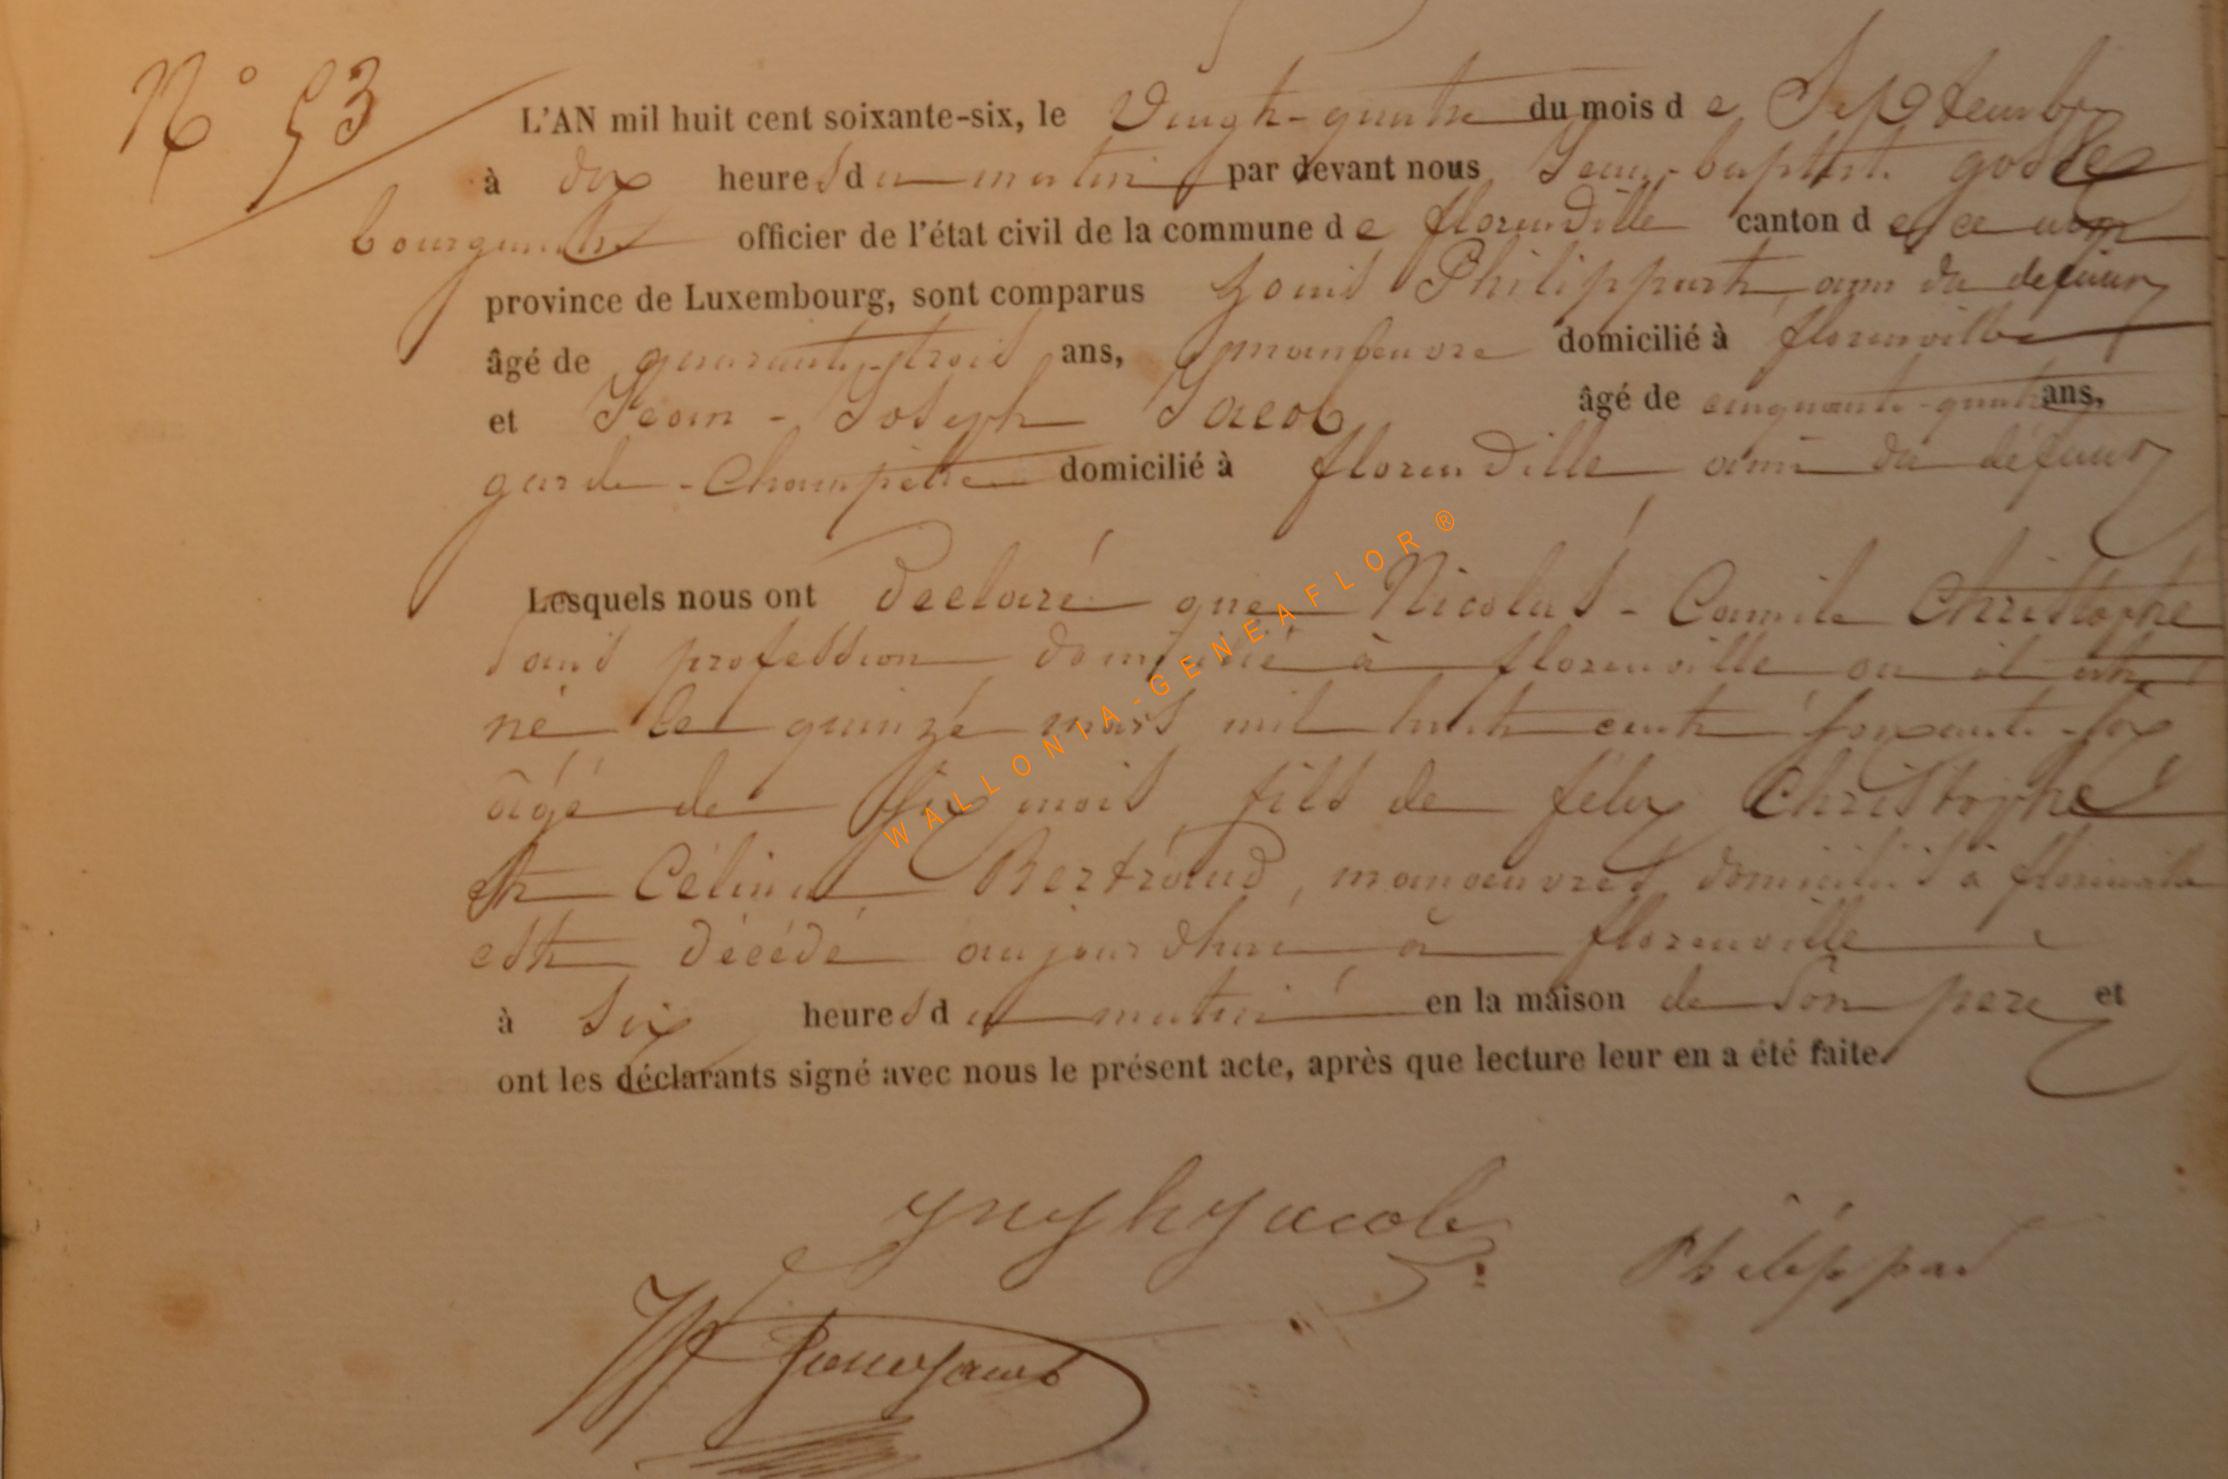 N° 53
L'AN mil huit cent soixante-six, le Vingt-quatre du mois de Septembre
à dix heures du matin par devant nous Jean-baptiste
bourgmestre officier de l'état civil de la commune de florenville canton de ce nom
province de Luxembourg, sont comparus Louis Philippart, ami du defunt
âgé de quarante-trois ans, manoeuvre domicilié à florenville
et Jean-Joseph Jacob âgé de cinquante-quatre ans,
garde-Champêtre domicilié à florenville ami du défunt
Lesquels nous ont declaré que Nicolas-Camile Christophe
sans profession domicilié à florenville ou il est
né le quinze mars mil huit cent soixante-six
âgé de six mois fils de félix Christophe
et Célina Bertrand, manoeuvres domiciliés à florenville
est décédé aujourdhui à florenville
à six heures du matin en la maison de son pere et
ont les déclarants signé avec nous le présent acte, après que lecture leur en a été faite.
WALLONIA-GENEAFLOR®